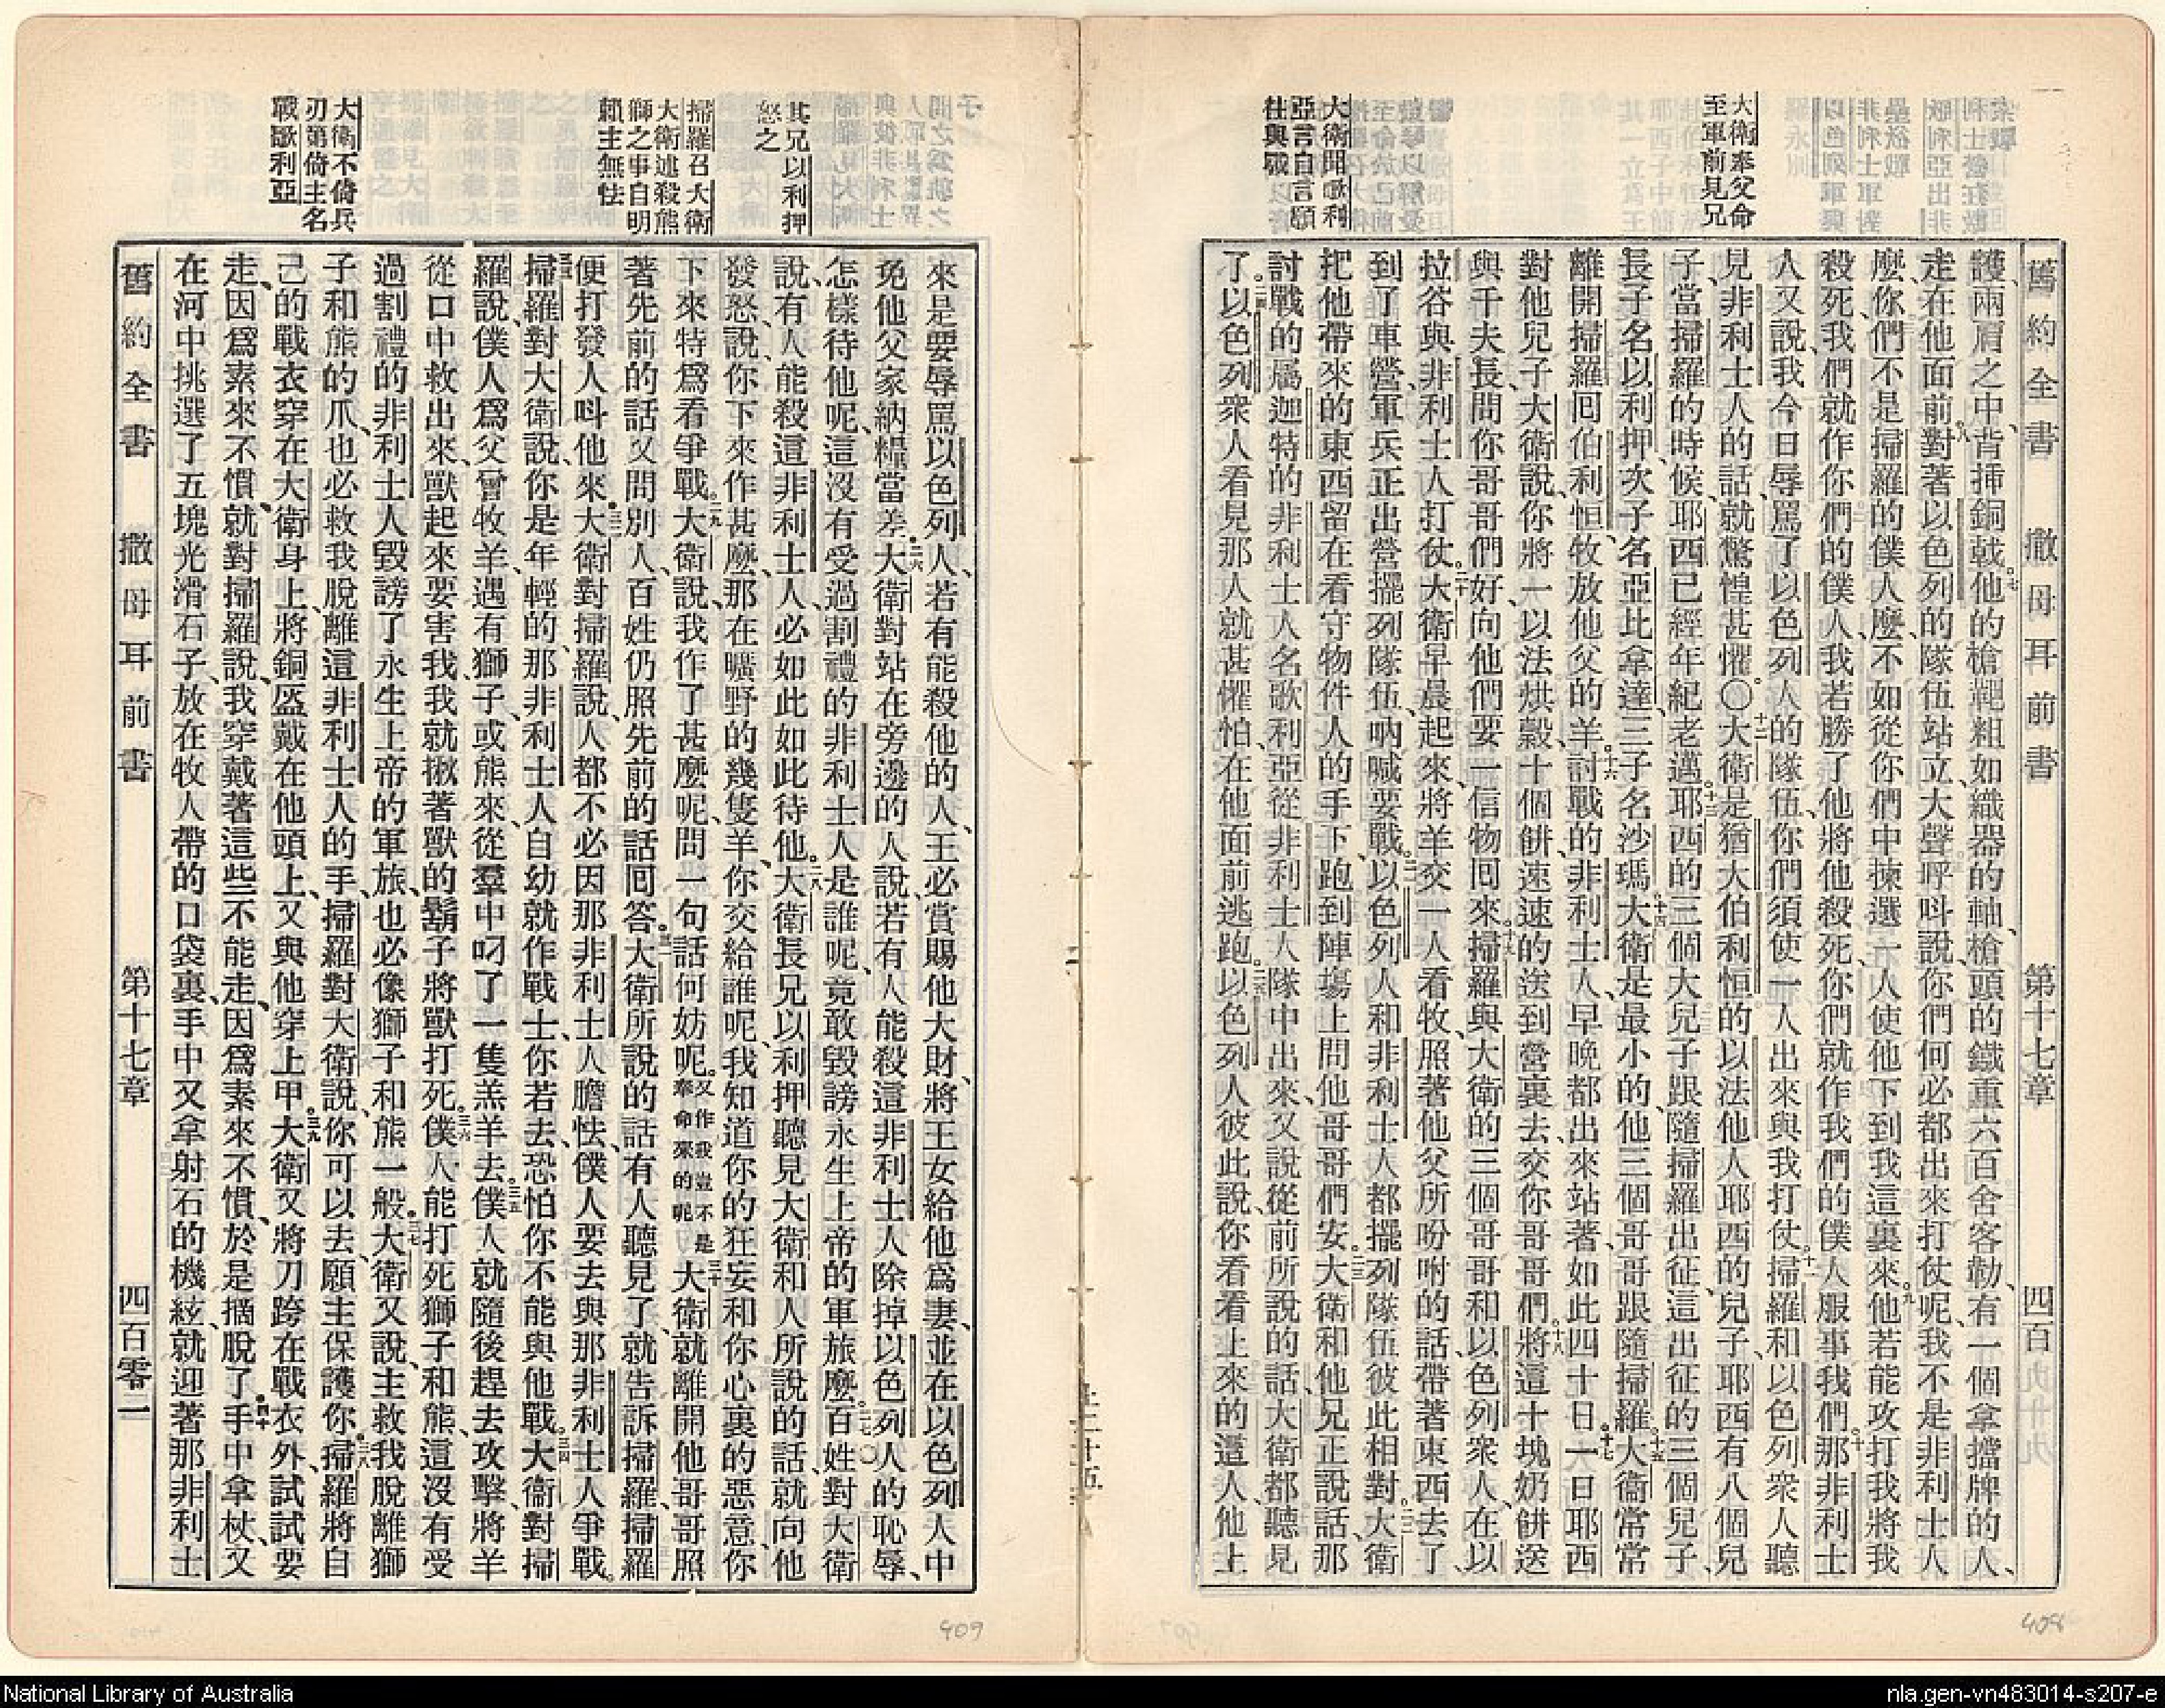 舊約全書 撒母耳前書 第十七章 四百
大衛奉父命
至軍前見兄
大衛聞歌利
亞言自言願
往與戰
護兩肩之中、背揷銅戟。七他的槍靶粗如織器的軸、槍頭的鐵重六百舍客勒、有一個拿擋牌的人、
走在他面前。八對著以色列的隊伍站立、大聲呼呌說、你們何必都出來打仗呢、我不是非利士人
麼、你們不是掃羅的僕人麼、不如從你們中揀選一人、使他下到我這裏來。九他若能攻打我將我
殺死、我們就作你們的僕人、我若勝了他將他殺死、你們就作我們的僕人服事我們。十那非利士
人又說、我今日辱罵了以色列人的隊伍、你們須使一人出來與我打仗。十一掃羅和以色列衆人聽
見非利士人的話、就驚惶甚懼。〇十二大衛是猶大伯利恒的以法他人耶西的兒子、耶西有八個兒
子、當掃羅的時候、耶西已經年紀老邁。十三耶西的三個大兒子跟隨掃羅出征、這出征的三個兒子、
長子名以利押、次子名亞比拿達、三子名沙瑪。十四大衛是最小的、他三個哥哥跟隨掃羅。十五大衞常常
離開掃羅囘伯利恒、牧放他父的羊。十六討戰的非利士人、早晚都出來站著、如此四十日。十七一日耶西
對他兒子大衛說、你將一以法烘穀、十個餅、速速的送到營裏去、交你哥哥們。十八將這十塊奶餅送
與千夫長、問你哥哥們好、向他們要一信物囘來。十九掃羅與大衛的三個哥哥和以色列衆人、在以
拉谷與非利士人打仗。二十大衛早晨起來、將羊交一人看牧、照著他父所吩咐的話、帶著東西去了、
到了車營、軍兵正出營擺列隊伍、吶喊要戰。二一以色列人和非利士人都擺列隊伍彼此相對。二二大衛
把他帶來的東西留在看守物件人的手下、跑到陣塲上問他哥哥們安。二三大衛和他兄正說話、那
討戰的屬迦特的非利士人名歌利亞、從非利士人隊中出來、又說從前所說的話、大衛都聽見
了。二四以色列衆人看見那人、就甚懼怕、在他面前逃跑。二五以色列人彼此說、你看看上來的這人、他上
其兄以利押
怒之
掃羅召大衛
大衛述殺熊
獅之事自明
賴主無怯
大衛不倚兵
刃第倚主名
戰歌利亞
來是要辱罵以色列人、若有能殺他的人、王必賞賜他大財、將王女給他爲妻、並在以色列人中
免他父家納糧當差。二六大衛對站在旁邊的人說、若有人能殺這非利士人除掉以色列人的恥辱、
怎樣待他呢、這沒有受過割禮的非利士人是誰呢、竟敢毀謗永生上帝的軍旅麼。二七〇百姓對大衛
說、有人能殺這非利士人、必如此如此待他。二八大衛長兄以利押聽見大衛和人所說的話、就向他
發怒、說、你下來作甚麼、那在曠野的幾隻羊、你交給誰呢、我知道你的狂妄和你心裏的惡意、你
下來特爲看爭戰。二九大衛說、我作了甚麼呢、問一句話何妨呢。又作我豈不是奉命來的呢三十大衛就離開他哥哥照
著先前的話又問別人、百姓仍照先前的話囘答。三一大衛所說的話有人聽見了、就告訴掃羅、掃羅
便打發人呌他來。三二大衛對掃羅說、人都不必因那非利士人膽怯、僕人要去與那非利士人爭戰。
三三掃羅對大衛說、你是年輕的、那非利士人自幼就作戰士、你若去、恐怕你不能與他戰。三四大衞對掃
羅說、僕人爲父曾牧羊、遇有獅子、或熊來、從羣中叼了一隻羔羊去。三五僕人就隨後趕去攻擊、將羊
從口中救出來、獸起來要害我、我就揪著獸的鬍子將獸打死。三六僕人能打死獅子和熊、這沒有受
過割禮的非利士人毀謗了永生上帝的軍旅、也必像獅子和熊一般。三七大衛又說、主救我脫離獅
子和熊的爪、也必救我脫離這非利士人的手、掃羅對大衛說、你可以去、願主保護你。三八掃羅將自
己的戰衣穿在大衛身上、將銅盔戴在他頭上、又與他穿上甲。三九大衛又將刀跨在戰衣外、試試要
走、因爲素來不慣、就對掃羅說、我穿戴著這些不能走、因爲素來不慣、於是摘脫了。四十手中拿杖、又
在河中挑選了五塊光滑石子、放在牧人帶的口袋裏、手中又拿射石的機絃、就迎著那非利士
舊約全書 撒母耳前書 第十七章 四百零一
408
409
National Library of Australia
nla.gen-vn483014-s207-e